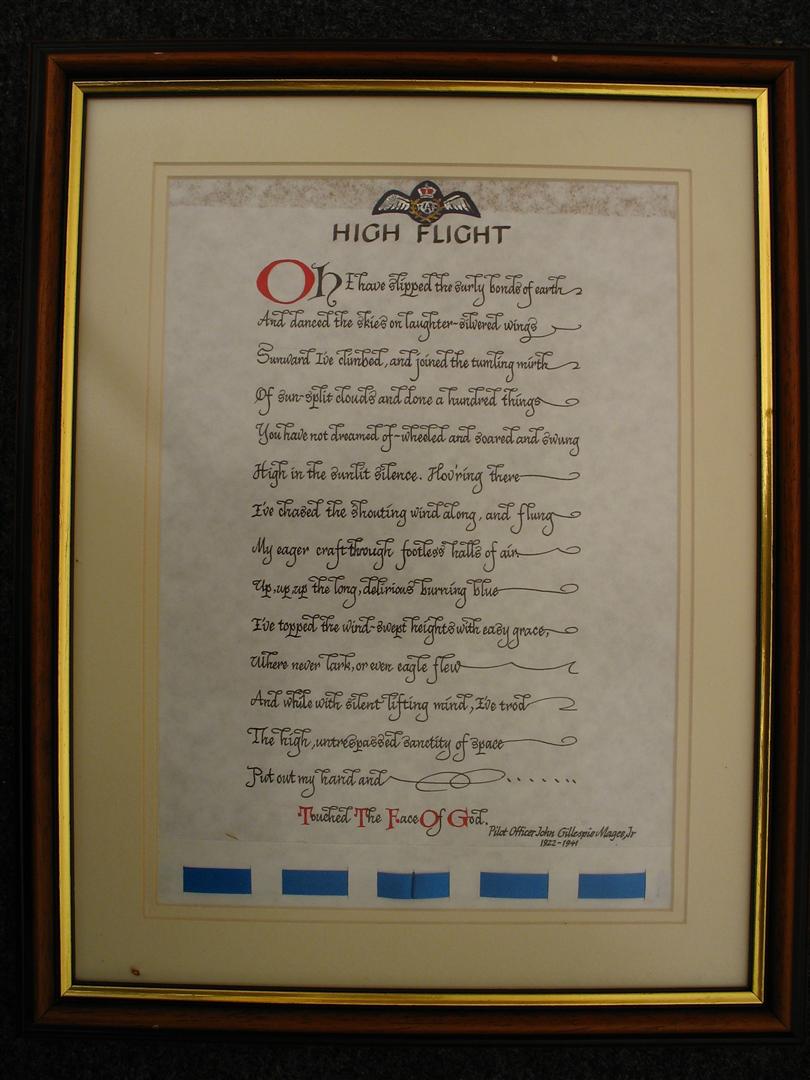 RAF
HIGH FLIGHT
Oh I have slipped the surly bonds of earth
And danced the skies on laughter-silvered wings
Sunward I've climbed, and joined the tumling mirth
Of sun-split clouds and done a hundred things
You have not dreamed of-wheeled and soared and swung
High in the sunlit silence. Hov'ring there
I've chased the shouting wind along, and flung
My eager craft through footless halls of air.
Up, up, up the long, delirious burning blue
I've topped the wind-swept heights with easy grace,
Where never lark, or even eagle flew
And while with silent lifting mind, I've trod
The high, untrespassed sanctity of space
Put out my hand and.......
Touched The Face Of God.
Pilot Officer John Gillespie Magee, Jr
1922-1941